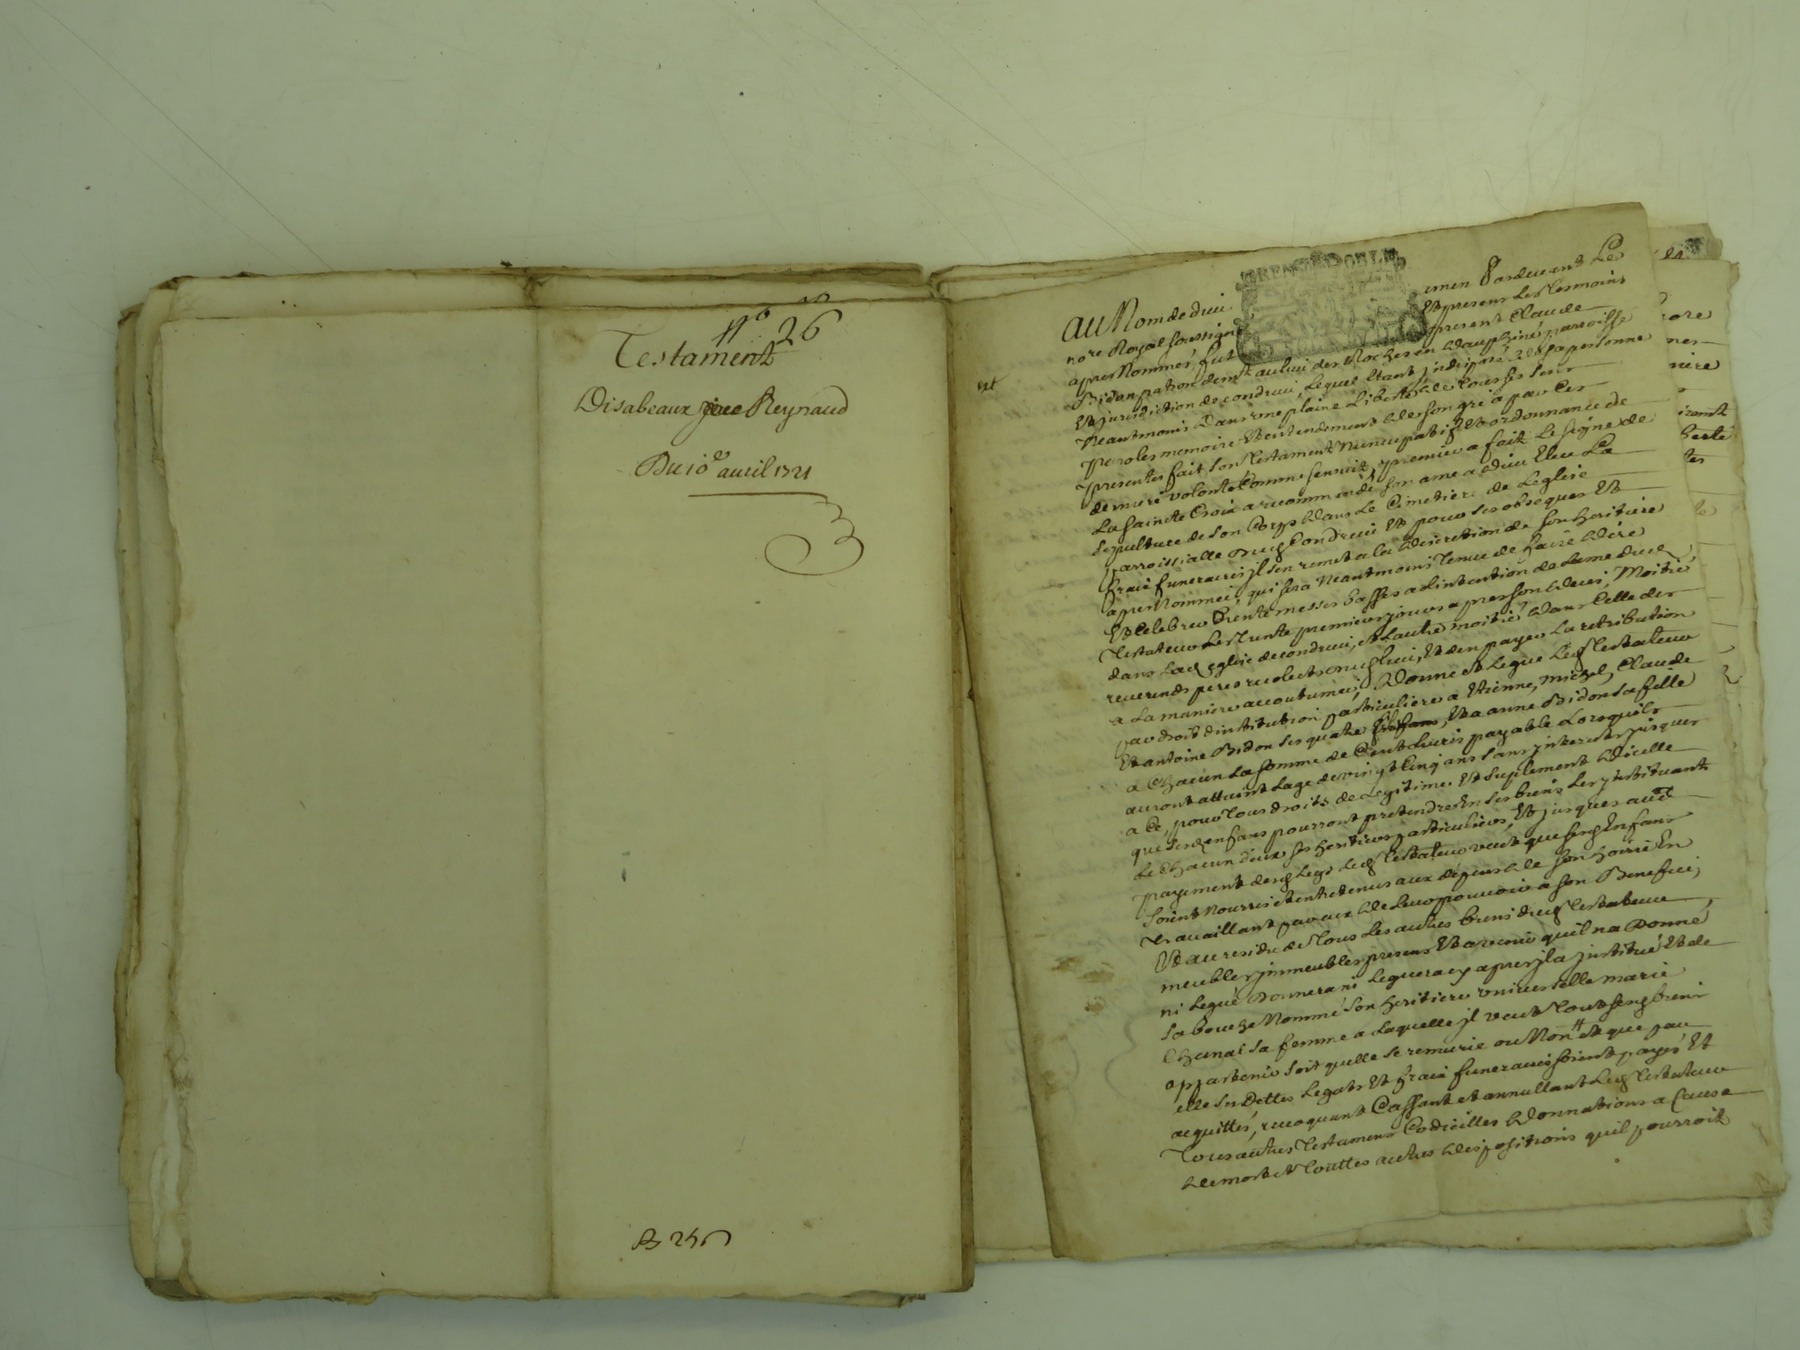 N.o 26
Testament
Disabeaux Reynaud
Du 10e auril 1721
3
au Nom de dieu amen Pardeuant Le
nore Royal soussigné Et presens Les tesmoins
apres Nommés, fut present Claude
Bidon patron demt au lieu des Roches en dauphiné paroisse
Et jurisdiction de condrieu, Lequel Etant jndisposé de sa personne
Neantmoins Dans une plaine Liberté de tous ses sens
paroles memoire Et entendement de son gré a par Ces
presentes fait son testament Nuncupatif Et ordonnance de
derniere volonté Comme sensuit, premier a fait Le signe de
La Sainte Croix a recommandé son ame a dieu Eleu La
sepulture de son Corps dans Le Cimetiere de Leglise
parroissialle dud Condrieu Et pour ses obseques Et
frais funeraires jl sen remet a la discretion de son heritiere
apres Nommée, qui sera Neantmoins tenue de faire dire
Et Celebrer trente messes basses a Lintention de Lame dud
Testateur Les trente premiers jours apres son deces, Moitié
dans Lad Eglise de condrieu, et Lautre moitié dans Celle des
reuerends peres recolects dud lieu, Et den payer La retribution
a La maniere accoutumée, Donne et Legue Led testateur
par droit dinstitution particuliere a Etienne, michel, Claude
Et antoine Bidon ses quatre Et a anne Bidon sa fille
a Chacun La somme de Cent Liures payable Lorsquils
auront atteint Lage de vingt Cinq ans sans jnterets jusques
a Ce, pour tous droits de Legitime Et suplement dicelle
que sesd enfans pourront pretendre En ses biens Les jnstituant
Le Chacun deux ses heritiers particuliers, Et jusques aud
payement desd Legs Led testateur veut que sesd Enfans
soient Nourris et entretenus aux depens de son hoirie En
trauaillant par eux de Leur pouuoir a son Benefice,
Et au residu de tous Les autres biens dud testateur
meubles jmmeubles presens Et auenir quil na Donné
ni Legué Donnera ni Leguera cy apres jl a jnstitué Et de
sa bouche Nommé son heritiere vniuerselle marie
Chanal sa femme a Laquelle jl veut tout sesd biens
appartenir soit quelle se remarie ou Non Et que par
elle ses Dettes Legats Et frais funeraires soient payés Et
acquittés, reuoquant Cassant et annullant Led testateur
Tous autres testamens Codicilles Donnations a Cause
de mort et touttes autres dispositions quil pourroit